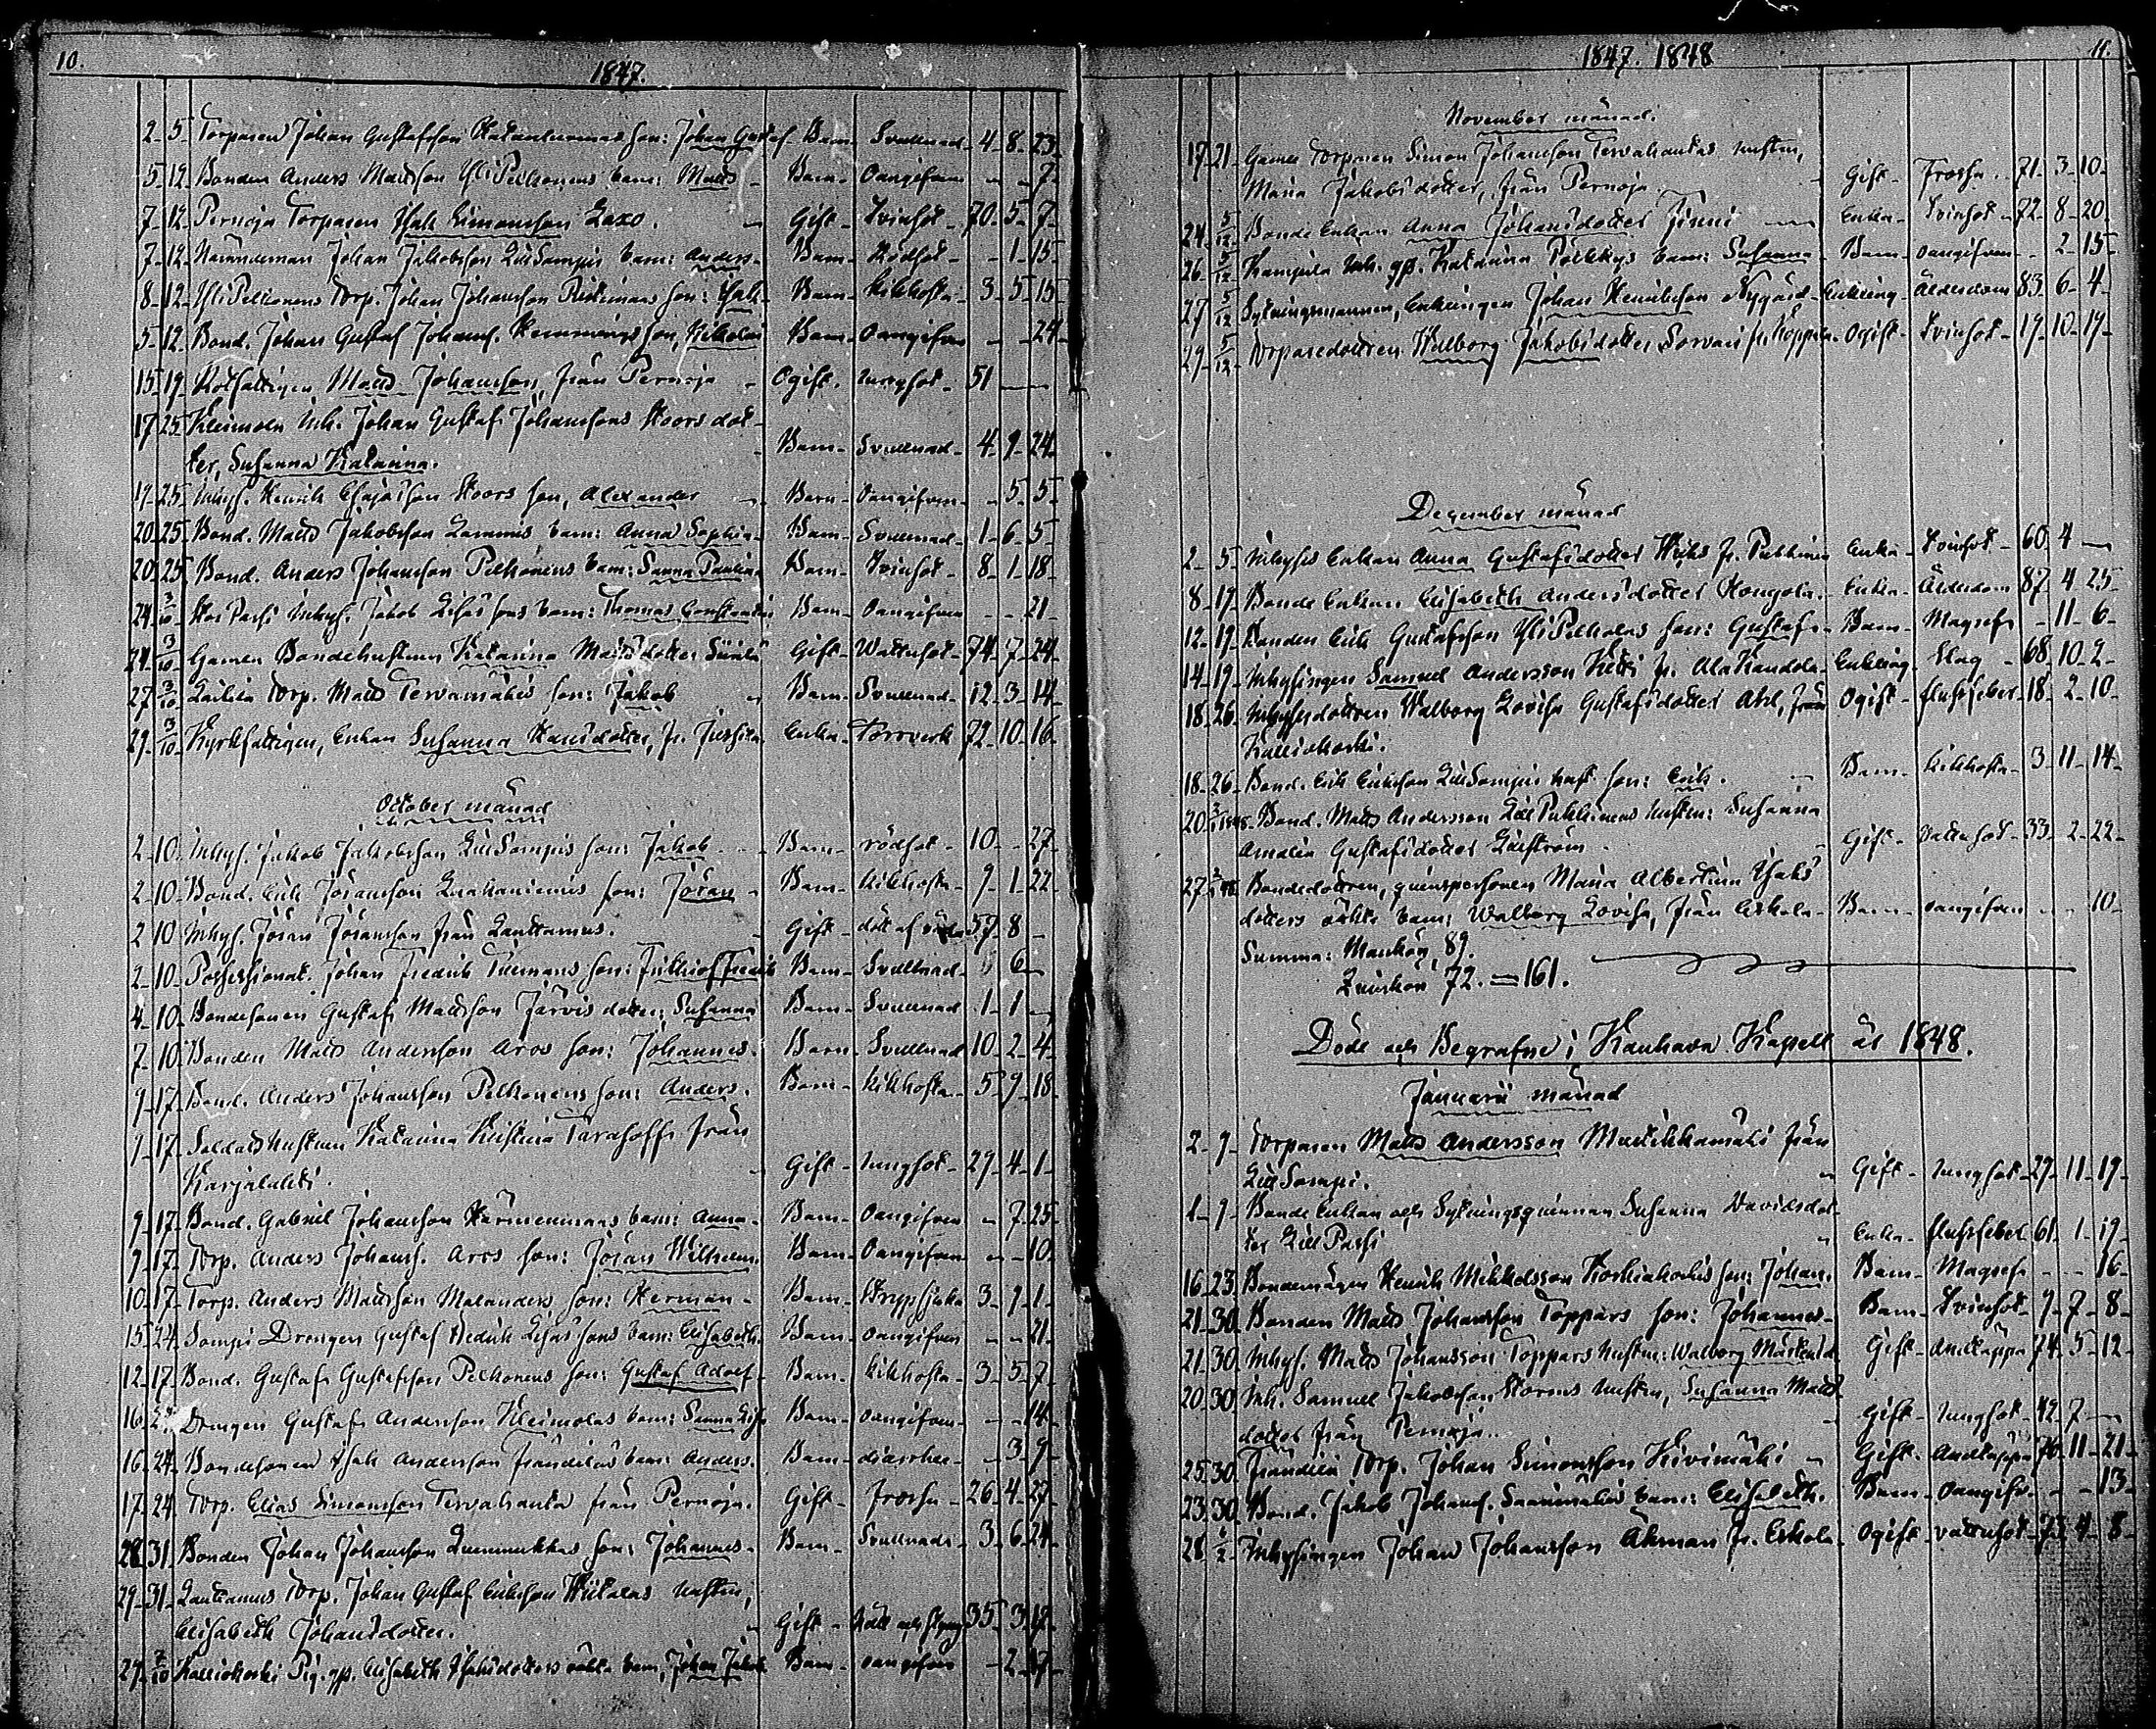 10.
1847.
2 5 Torparen Johan Gustafsson son: Johan Gustaf Barn Svullnad 4 8 23
5 12 Bonden Anders Mattsson Yli Pelkonens barn: Matts Barn Oangifven 7
7 12 Pernoja Torparen Isak Simonsson Laxo. Gift Tvinsot 70 5 7
7 12 Nämndeman Johan Jakobsson LillSompis barn: Anders Barn Rödsot 1 15
8 12 YliPelkonens Torp. Johan Johansson son: Isak Barn Kikhosta 3 5 15
5 12 Bond. Johan Gustaf Johanss. Hemmings son, Nikolai Barn Oangifven 24
15 19 Rotfattigen Matts Johansson, från Pernoja Ogift. Lungsot 51
17 25 Kleimola Inh. Johan Gustaf Johanssons Stoors dot-
ter, Susanna Katarina. Barn Svullnad 4 9 24
19 25 Inhys. Henrik Esajasson Stoors son, Alexander Barn Oangifven 5 5
20 25 Bond. Matts Jakobsson Lammis barn: Anna Sophia Barn Svullnad 1 6 5
20 25 Bond. Anders Johansson Pelkonens barn: Sanna Paulina Barn Tvinsot 8 1 18
24 3/10 Stor Passi Inhys. Jakob barn: Thomas Constantin Barn Oangifven 21
24 3/10 Gamen Bondehustrun Katarina Mattsdotter Gift Vattusot 74 7 24
27 3/10 Torp. Matts Tervamäkis son: Jakob Barn Svullnad 12 3 14
29 3/10 Kyrkfattigen, Enkan Susanna Hansdotter, fr. Jussila Enka Torrverk 72 10 16
October månad
2 10 Inhys. Jakob Jakobsson LillSompis son: Jakob Barn rödsot 10 27
2 10 Bond. Erik Jöransson son: Jöran Barn kikhosta 9 1 22
2 10 Inhys. Jöran Jöransson från Lauttamus. Gift död af 57 8
2 10 Possessionat. Johan Fredrik son: Frithiof Fredrik Barn Svullnad 6
4 10 Bondesonen Gustaf Mattsson Järvis dotter: Susanna Barn Svullnad 1 1
7 10 Bonden Matts Andersson Aros son: Johannes. Barn Svullnad 10 2 4
9 17 Bond. Anders Johansson Pelkonens son: Anders. Barn kikhosta 5 9 18
9 17 Soldatshustrun Katarina Kristina Tarasoff från
Karjalahti. Gift lungsot 29 4 1
9 17 Bond. Gabriel Johansson Härmenmaas barn: Anna Barn Oangifven 7 25
9 17 Torp. Anders Johanss. Aros son: Jöran Wilhelm. Barn Oangifven 10
10 17 Torp. Anders Mattsson Malanders son: Herman Barn Strypsjuka 3 9 1
15 24 Sompi Drengen Gustaf Fredrik barn: Elisabeth Barn Oangifven 21
12 17 Bond. Gustaf Gustafsson Pelkonens son: Gustaf Adolf Barn kikhosta 3 5 7
16 24 Drengen Gustaf Andersson Kleimolas barn: Sanna Lisa Barn oangifven 14
16 24 Bondesonen Isak Andersson Frändiläs barn: Anders. Barn diarrhee 3 9
17 24 Torp. Elias Simonsson Tervahauta från Pernoja. Gift frossa 26 4 27
28 31 Bonden Johan Johansson Lummukkas son: Johannes Barn Svullnad 3 6 24
29 31 Lauttamus Torp. Johan Gustaf Eriksson Wiitalas hustru,
Elisabeth Johansdotter. Gift Håll och styng 35 3 12
27 7/10 Kalliokoski Pig. gft. Elisabeth Isaksdotters oäkta barn, Johan Jakob Barn oangifven 2 17
1847. 1848
11.
November månad.
17 21 Gamen Torparen Simon Johansson Tervahautas hustru,
Maria Jakobsdotter, från Pernoja. Gift Frossa 71 3 10
24 5/12 Bonde Enkan Anna Johansdotter Finni Enka Tvinsot 72 8 20
26 5/12 Inh. gft. Katarina Pöllkkys barn: Susanna Barn oangifven 2 15
27 5/12 Sytningsmannen, Enklingen Johan Henriksson Nygård Enkling Ålderdom 83 6 4
29 5/12 Torparedottren Walborg Jakobsdotter Sorvari fr. Koppala Ogift Tvinsot 19 10 19
December månad
2 5 Inhyses Enkan Anna Gustafsdotter Wiiks fr. Puhkinen Enka Tvinsot 60 4
8 19 Bonde Enkan Elisabeth Andersdotter Kongola. Enka Ålderdom 87 4 25
12 19 Bonden Erik Gustafsson YliPelkolas son: Gustaf Barn Magref 11 6
14 19 Inhysingen Samuel Andersson fr. AlaKandola Enkling Slag 68 10 2
18 26 Inhysesdottren Walborg Lovisa Gustafsdotter Ahl, från
Kalliokoski. Ogift flussfeber 18 2 10
18 26 Bond. Erik Eriksson LillSompis son: Erik. Barn kikhosta 3 11 14
20 2/1 1848 Bond. Matts Andersson LillPuhkinens hustru: Susanna
Amalia Gustafsdotter Lillström Gift Vattusot 33 2 22
27 2/1 48 Bondedottren, qvinspersonen Maria Albertina Isaks
dotters oäkta barn: Walborg Lovisa, från Eskola Barn oangifven 10
Summa: Mankön, 89.
Qvinkön 72. = 161.
Döde och Begrafne i Kauhava Kapell år 1848.
Januarii månad
2 9 Torparen Matts Andersson från
Lill Sompi. Gift Lungsot 29 11 19
1 9 Bonde Enkan och Sytningsqvinnan Susanna Davidsdot-
ter Lill Passi Enka flussfeber 61 1 19
16 23 Bondemågen Henrik Mikkelsson Koskiakoskis son: Johan. Barn Magref 16
21 30 Bonden Matts Johansson Toppars son: Johannes Barn Tvinsot 9 7 8
21 30 Inhys. Matts Johansson Toppars hustru: Walborg Mårtensd. Gift Andtäppa 74 5 12
20 30 Inh. Samuel Jakobsson Storms hustru, Susanna Matts
dotter från Pernoja. Gift Lungsot 42 7
25 30 Frändilä Torp. Johan Simonsson Kivimäki Gift Andtäppa 76 11 21
23 30 Bond. Jakob Johanss. Saarimäkis barn: Elisabeth. Barn Oangifv. 13
28 6/2 Inhysingen Johan Johansson Åkman fr. Eskola Ogift vattusot 73 4 8